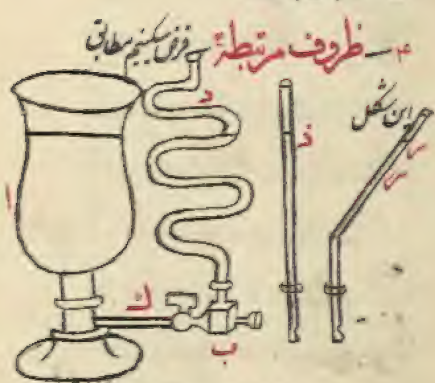 ۴ ــ ظروف مرتبطة ــ فرض میکنیم مطابق
این شکل
ا
د
ذ
ر
ك
ب